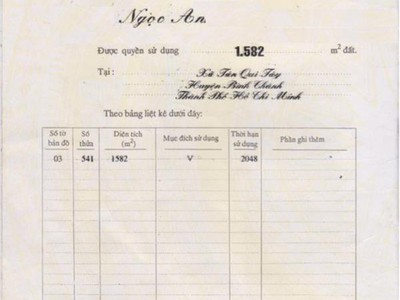 Ngọc An.
Được quyền sử dụng 1.582 m² đất.
Tại : Xã Tân Quí Tây
Huyện Bình Chánh
Thành Phố Hồ Chí Minh
Theo bảng liệt kê dưới đây:
Số tờ bản đồ Số thửa Diện tích (m²) Mục đích sử dụng Thời hạn sử dụng Phần ghi thêm
03 541 1582 V 2048